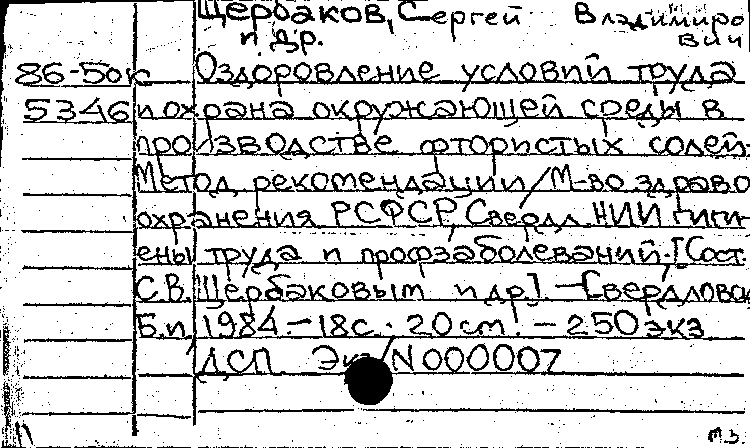 Щербаков, Сергей Владимиро
вич
и др.
86-50к Оздоровление условий труда
5346 и охрана окружающей среды в
производстве фтористых солей:
Метод. рекомендации/М-во здраво
охранения РСФСР, Свердл. НИИ гиги-
ены труда и профзаболеваний; [Сост.
С.В. Щербаковым и др]. -Свердловск
Б.и, 1984.-18с. 20см. - 250экз
ДСП. Экз N000007
м.з.